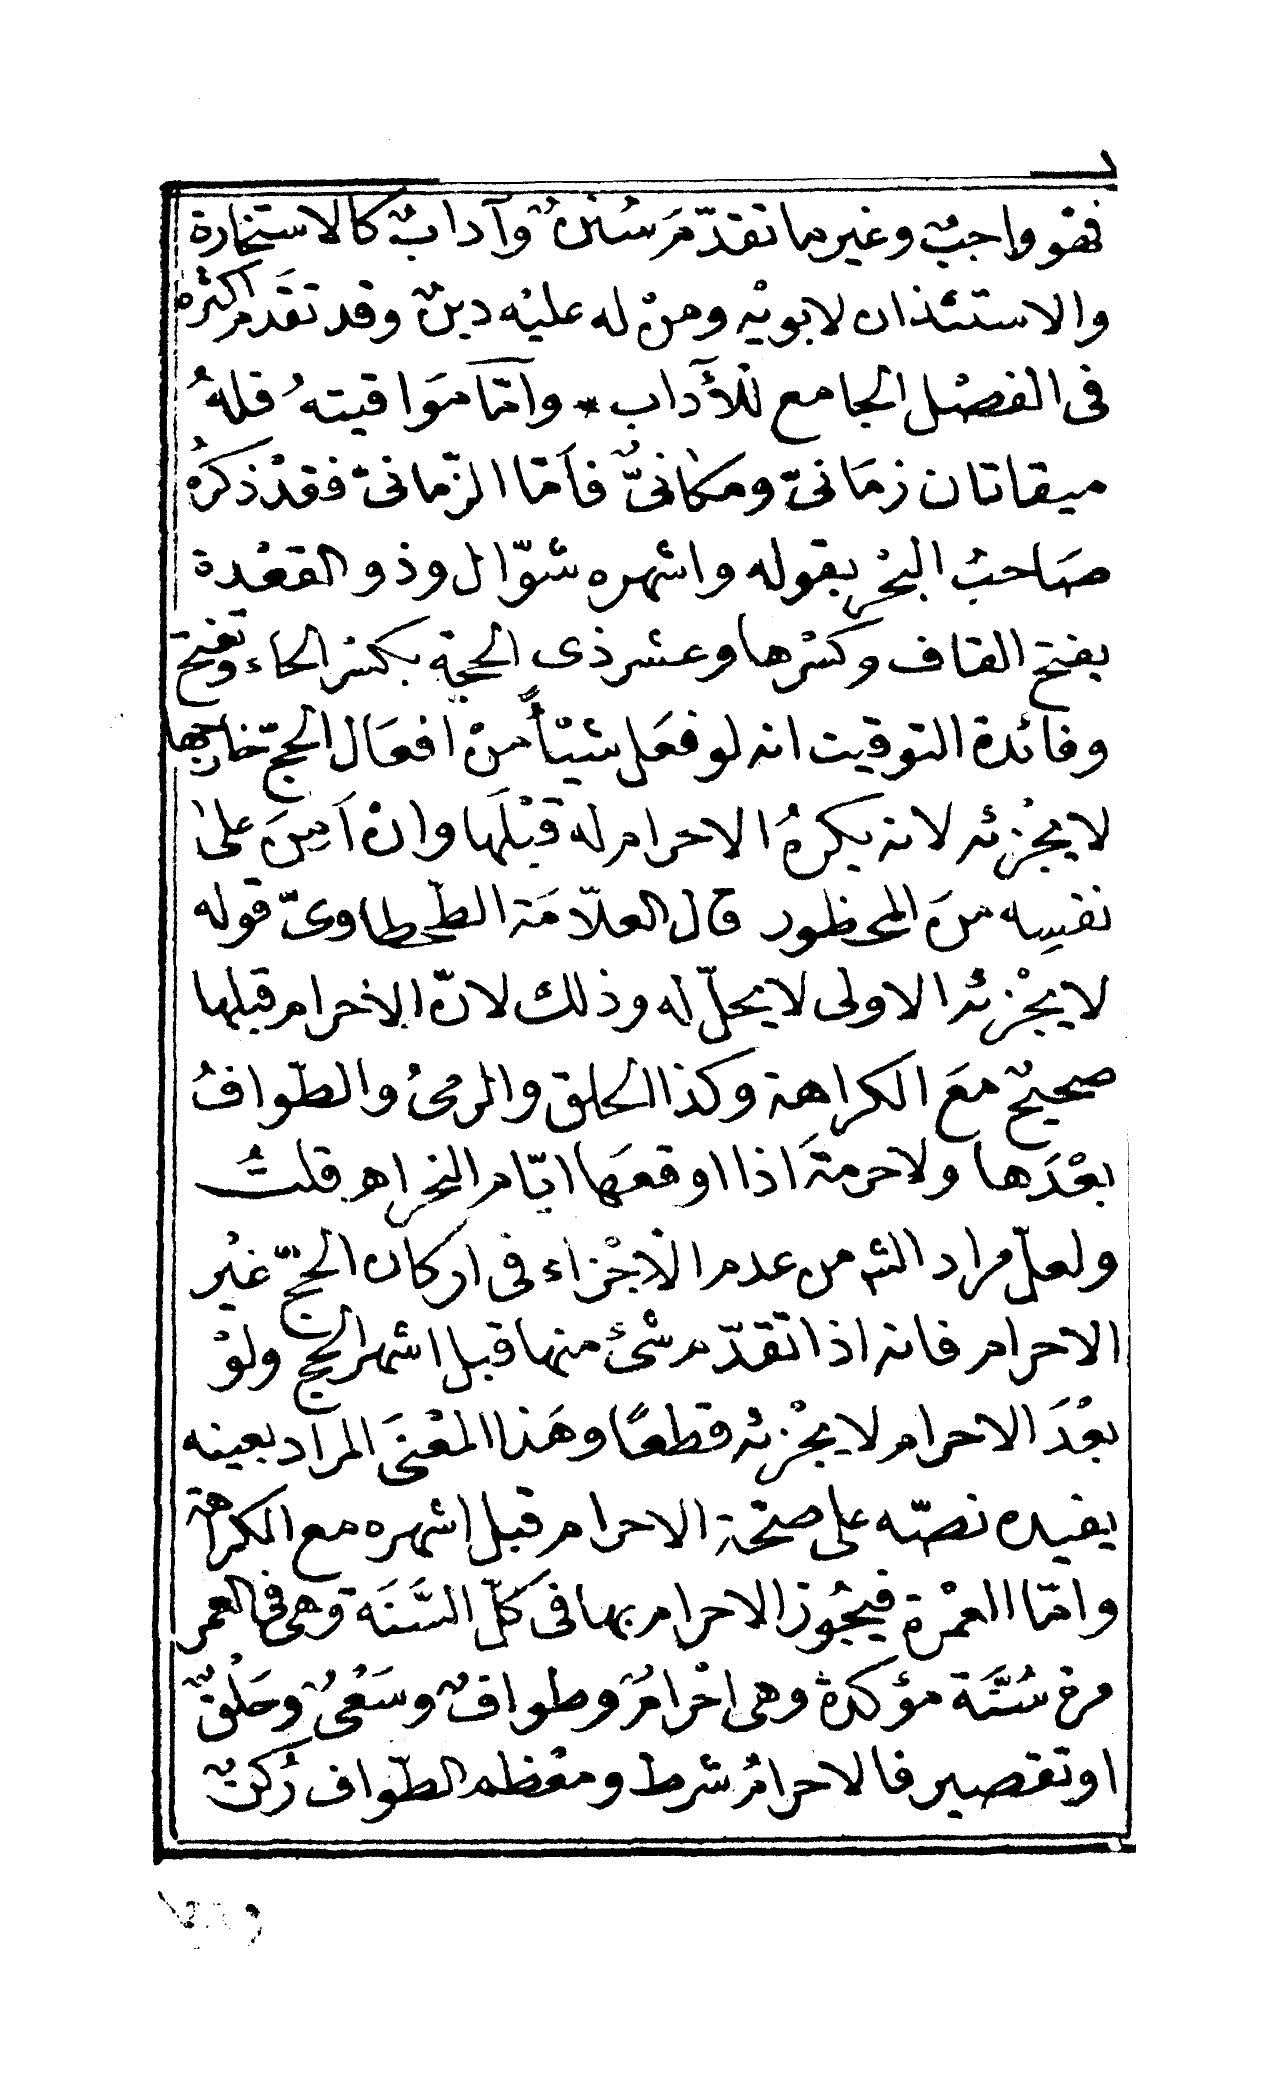 فهو واجبٌ وغير ما تقدّمَ سُننٌ وآدابٌ كالاستخارة
والاستئذان لابويْه ومنْ له عليْه دينٌ وقد تقَدم اكثره
فى الفصْل الجامع للْآداب * وامّا مَواقيتهُ فلهُ
ميقاتان زمَانىّ ومكانىٌّ فاَمّا الزّمانىّ فقدْ ذكرَهُ
صَاحبُ البحْر بقوله واشهره شوّال وذو القعْدة
بفتح القاف وكسْرها وعشر ذى الحجة بكسْر الحاء وتفتح
وفائدة التوقيت انه لو فعَل شيْئاً منْ افعَال الحجّ خارجها
لا يجْزئه لانه يكرهُ الاحرام له قبْلَها وانْ اَمِنَ علىٰ
نفسِه منَ المحظور قال العلاّمَة الطّحطاوىّ قوله
لا يجْزئه الاولى لا يحلّ له وذلك لانّ الاحْرام قبلها
صحيحٌ معَ الكراهة وكذا الحلق والرمىُ والطّوافُ
بعْدَها ولا حرمةَ اذا اوقعَها ايّام النحر اهـ قلتُ
ولعلّ مراد الشم من عدم الْاجْزاء فى اركان الحجّ غيْر
الاحرام فانه اذا تقدّم شئ منها قبل اشهر الحج ولوْ
بعْدَ الاحرام لا يجْزئه قطعًا وهَذا المعْنىَ المراد بعينه
يفيده نصّه على صحّة الاحرام قبل اشهره مع الكراهة
وامّا العمْرة فيجُوز الاحرام بها فى كلّ السَّنَة وهى فى العمر
مرة سُنَّة مؤكدة وهى احْرامٌ وطوافٌ وسَعْىٌ وحَلْقٌ
او تقصير فالاحرامُ شرط ومعْظم الطّواف رُكنٌ